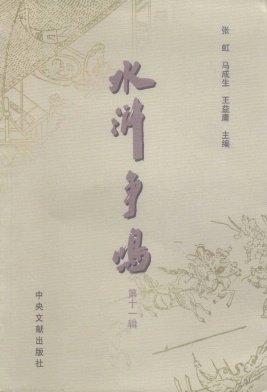 张虹 马成生 王益庸 主编
水浒争鸣
第十一辑
中央文献出版社